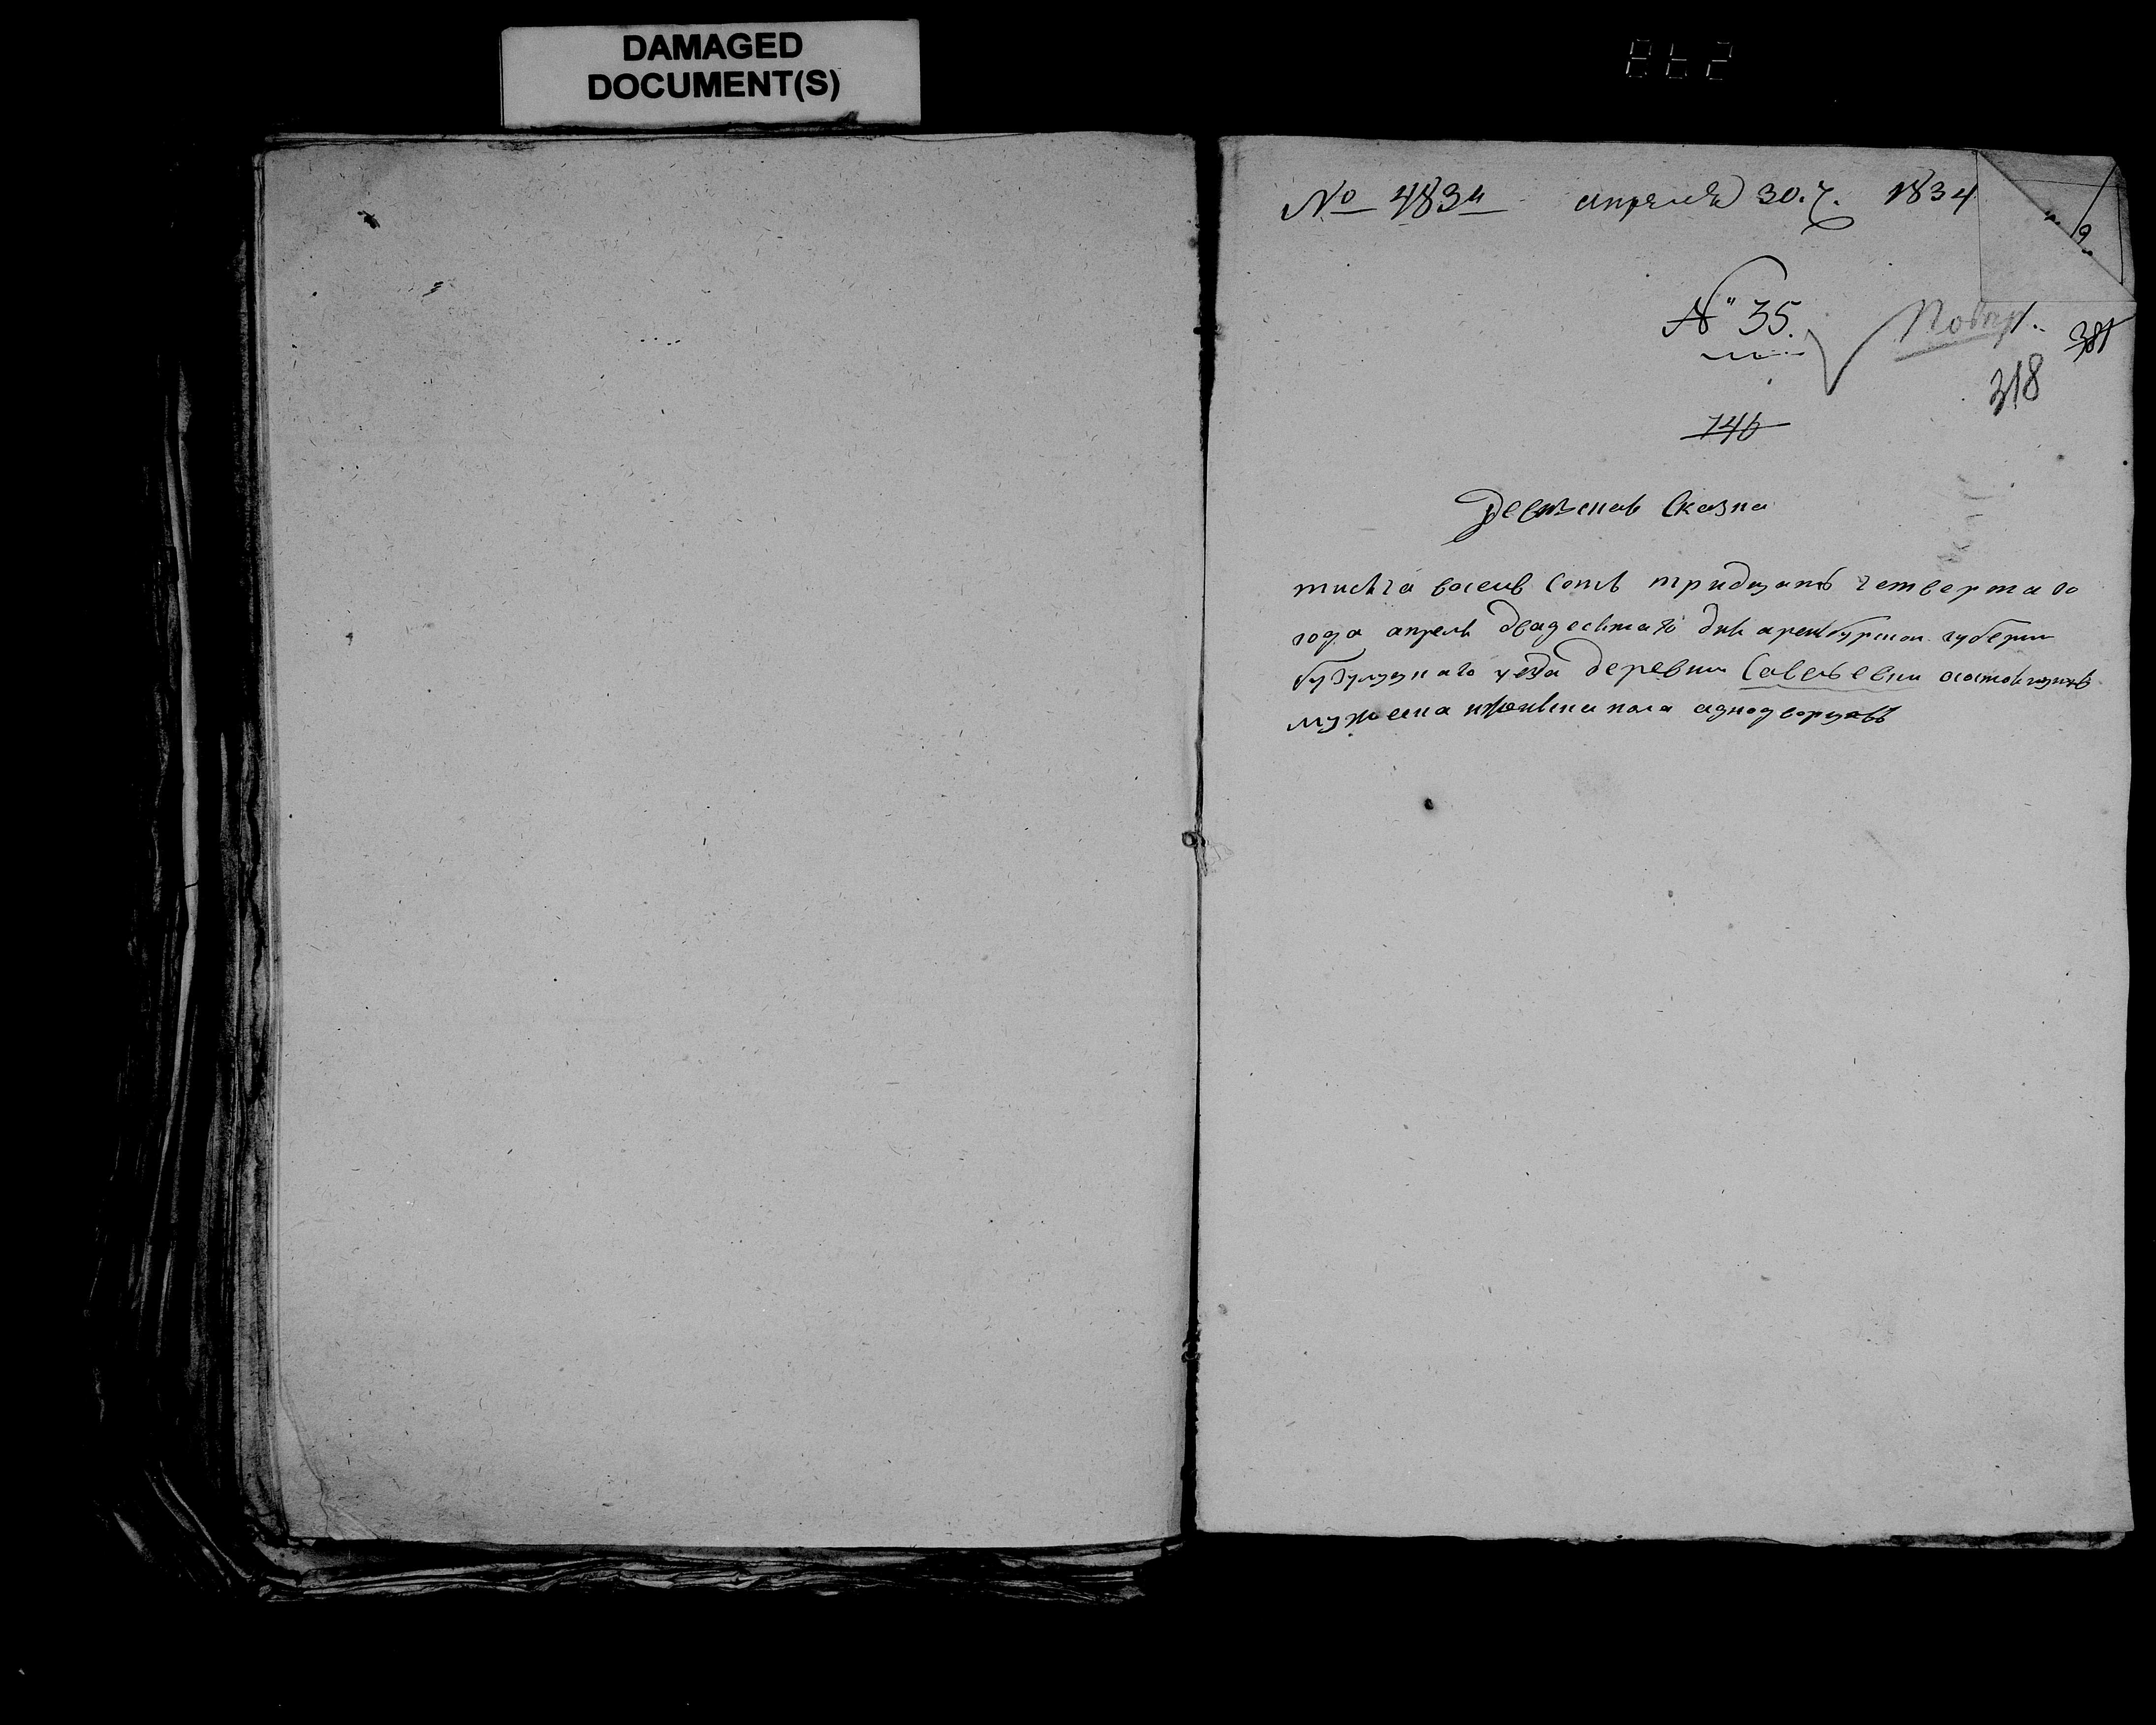 DAMAGED
DOCUMENT(S)
№ 4834 апреля 30. ч. 1834
№ 35.
381
318
746
Ревизская Сказка
тысяча восемь сотъ тридцать четвертаго
года апреля двадесятаго дня аренбурской губернии
бузулуцкаго уезда деревни Савельевки асостоящихъ
мужеска иженска пола аднодворцовъ